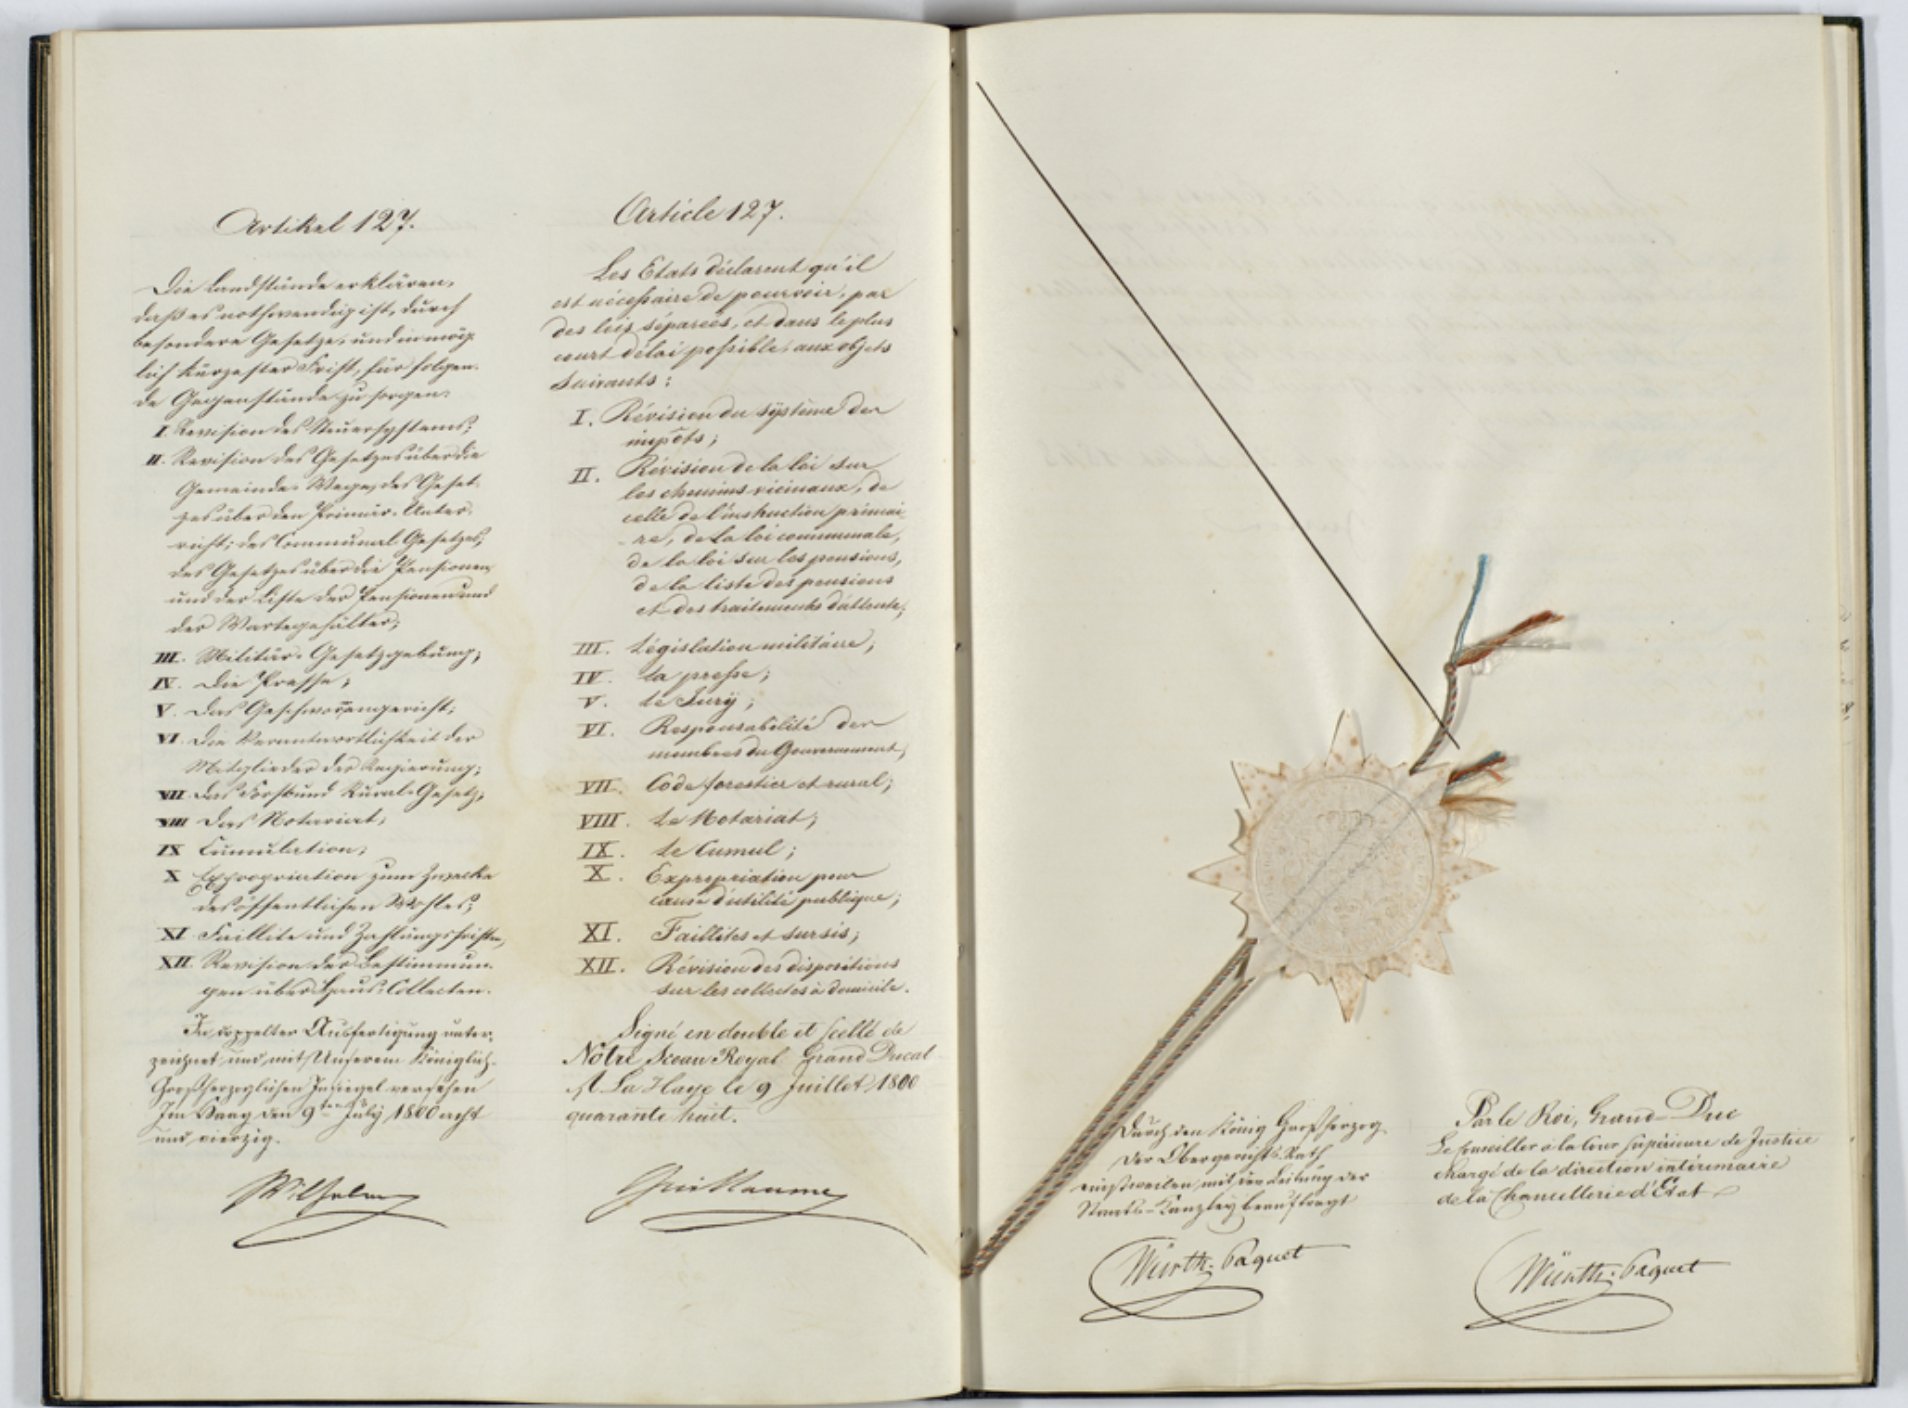 Artikel 127.
Die Landstände erklären,
daß es nothwendig ist, durch
besondere Gesetze, und in mög-
lich kürzester Frist, für folgen-
de Gegenstände zu sorgen:
I. Revision des Steuersystems;
II. Revision des Gesetzes über die
Gemeinde-Wege, des Geset-
zes über den Primär-Unter-
richt; des Communal-Gesetzes,
des Gesetzes über die Pensionen
und der Liste der Pensionen und
der Wartegehälter;
III. Militär-Gesetzgebung;
IV. Die Presse;
V. Das Geschworengericht;
VI. Die Verantwortlichkeit der
Mitglieder der Regierung;
VII. Das Forst und Rural-Gesetz;
VIII Das Notariat;
IX Cumulation;
X Expropriation zum Zwecke
des öffentlichen Wohles;
XI. Faillite und Zahlungsfristen,
XII. Revision der Bestimmun-
gen über Haus-Collecten.
In doppelter Ausfertigung unter-
zeichnet und mit Unserem Königlich-
Großherzoglichen Insiegel versehen
Im Haag den 9ten July 1800 acht
und vierzig.
Wilhelm
Article 127.
Les Etats déclarent qu'il
est nécessaire de pourvoir, par
des lois séparées, et dans le plus
court délai possible, aux objets
suivants:
I. Révision du système des
impôts;
II. Révision de la loi sur
les chemins vicinaux, de
celle de l'instruction primai-
re, de la loi communale,
de la loi sur les pensions,
de la liste des pensions
et des traitements d'attente;
III. Législation militaire;
IV. la presse;
V. le Jury;
VI. Responsabilité des
membres du Gouvernement;
VII. Code forestier et rural;
VIII. Le Notariat;
IX. Le Cumul;
X. Expropriation pour
cause d'utilité publique;
XI. Faillites et sursis;
XII. Révision des dispositions
sur les collectes à domicile.
Signé en double et scellé de
Notre Sceau Royal Grand Ducal
A La Haye le 9 Juillet 1800
quarante huit.
Guillaume
Durch den König Großherzog.
Der Obergerichts-Rath
einstweilen mit der Leitung der
Staats-Kanzley beauftragt
Würth-Paquet
Par le Roi, Grand-Duc
Le Conseiller à la Cour Supérieure de Justice
chargé de la direction intérimaire
de la Chancellerie d'Etat
Würth-Paquet